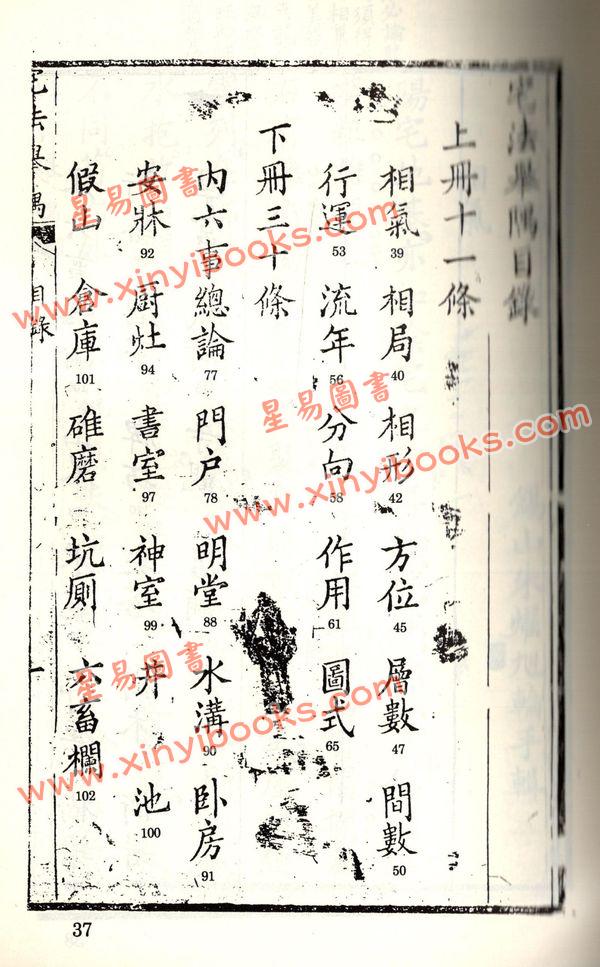 宅法舉隅目錄
上冊十一條
相氣39 相局40 相形42 方位45 層數47 間數50
行運53 流年56 分向58 作用61 圖式65
下冊三十條
內六事總論77 門户78 明堂88 水溝90 卧房91
安牀92 厨灶94 書室97 神室99 井 池100
假山 倉庫101 碓磨 坑厠 六畜欄102
宅法舉隅 目錄 一
37
星易圖書
www.xinyibooks.com
星易圖書
www.xinyibooks.com
星易圖書
www.xinyibooks.com